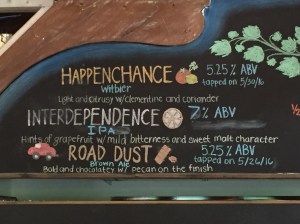 HAPPENCHANCE 5.25% ABV
Witbier tapped on 5/30/16
Light and Citrusy w/clementine and coriander
INTERDEPENDENCE 7% ABV
IPA
Hints of grapefruit w/mild bitterness and sweet malt character
ROAD DUST 5.25% ABV
Brown Ale tapped on 5/26/16
Bold and chocolatey w/ pecan on the finish